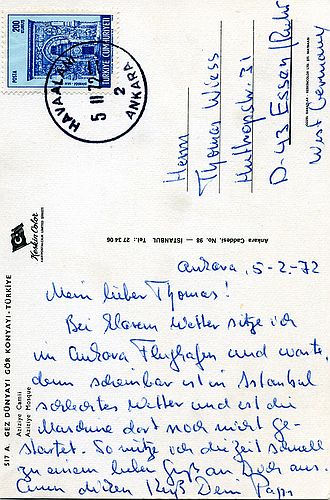 TÜRKİYE CUMHURİYETİ
POSTA
HAVAALANI
5 II 72
2
ANKARA
Herrn
Thomas Wiess
Huttropstr. 31
D-43 Essen/Ruhr
West Germany
Keskin Color
Ankara Caddesi, No. 98 — İSTANBUL Tel.: 27 34 06
517 A. GEZ DÜNYAYI GÖR KONYAYI - TÜRKİYE
Aziziye Camii
Aziziye Mosque
Ankara, 5-2-72
Mein lieber Thomas!
Bei klarem Wetter sitze ich
im Ankara Flughafen und warte,
denn scheinbar ist in Istanbul
schlechtes Wetter und ist die
Maschine dort noch nicht ge-
startet. So nütze ich die Zeit schnell
zu einem lieben Gruß an Euch aus.
Einen dicken Kuß Dein Papa